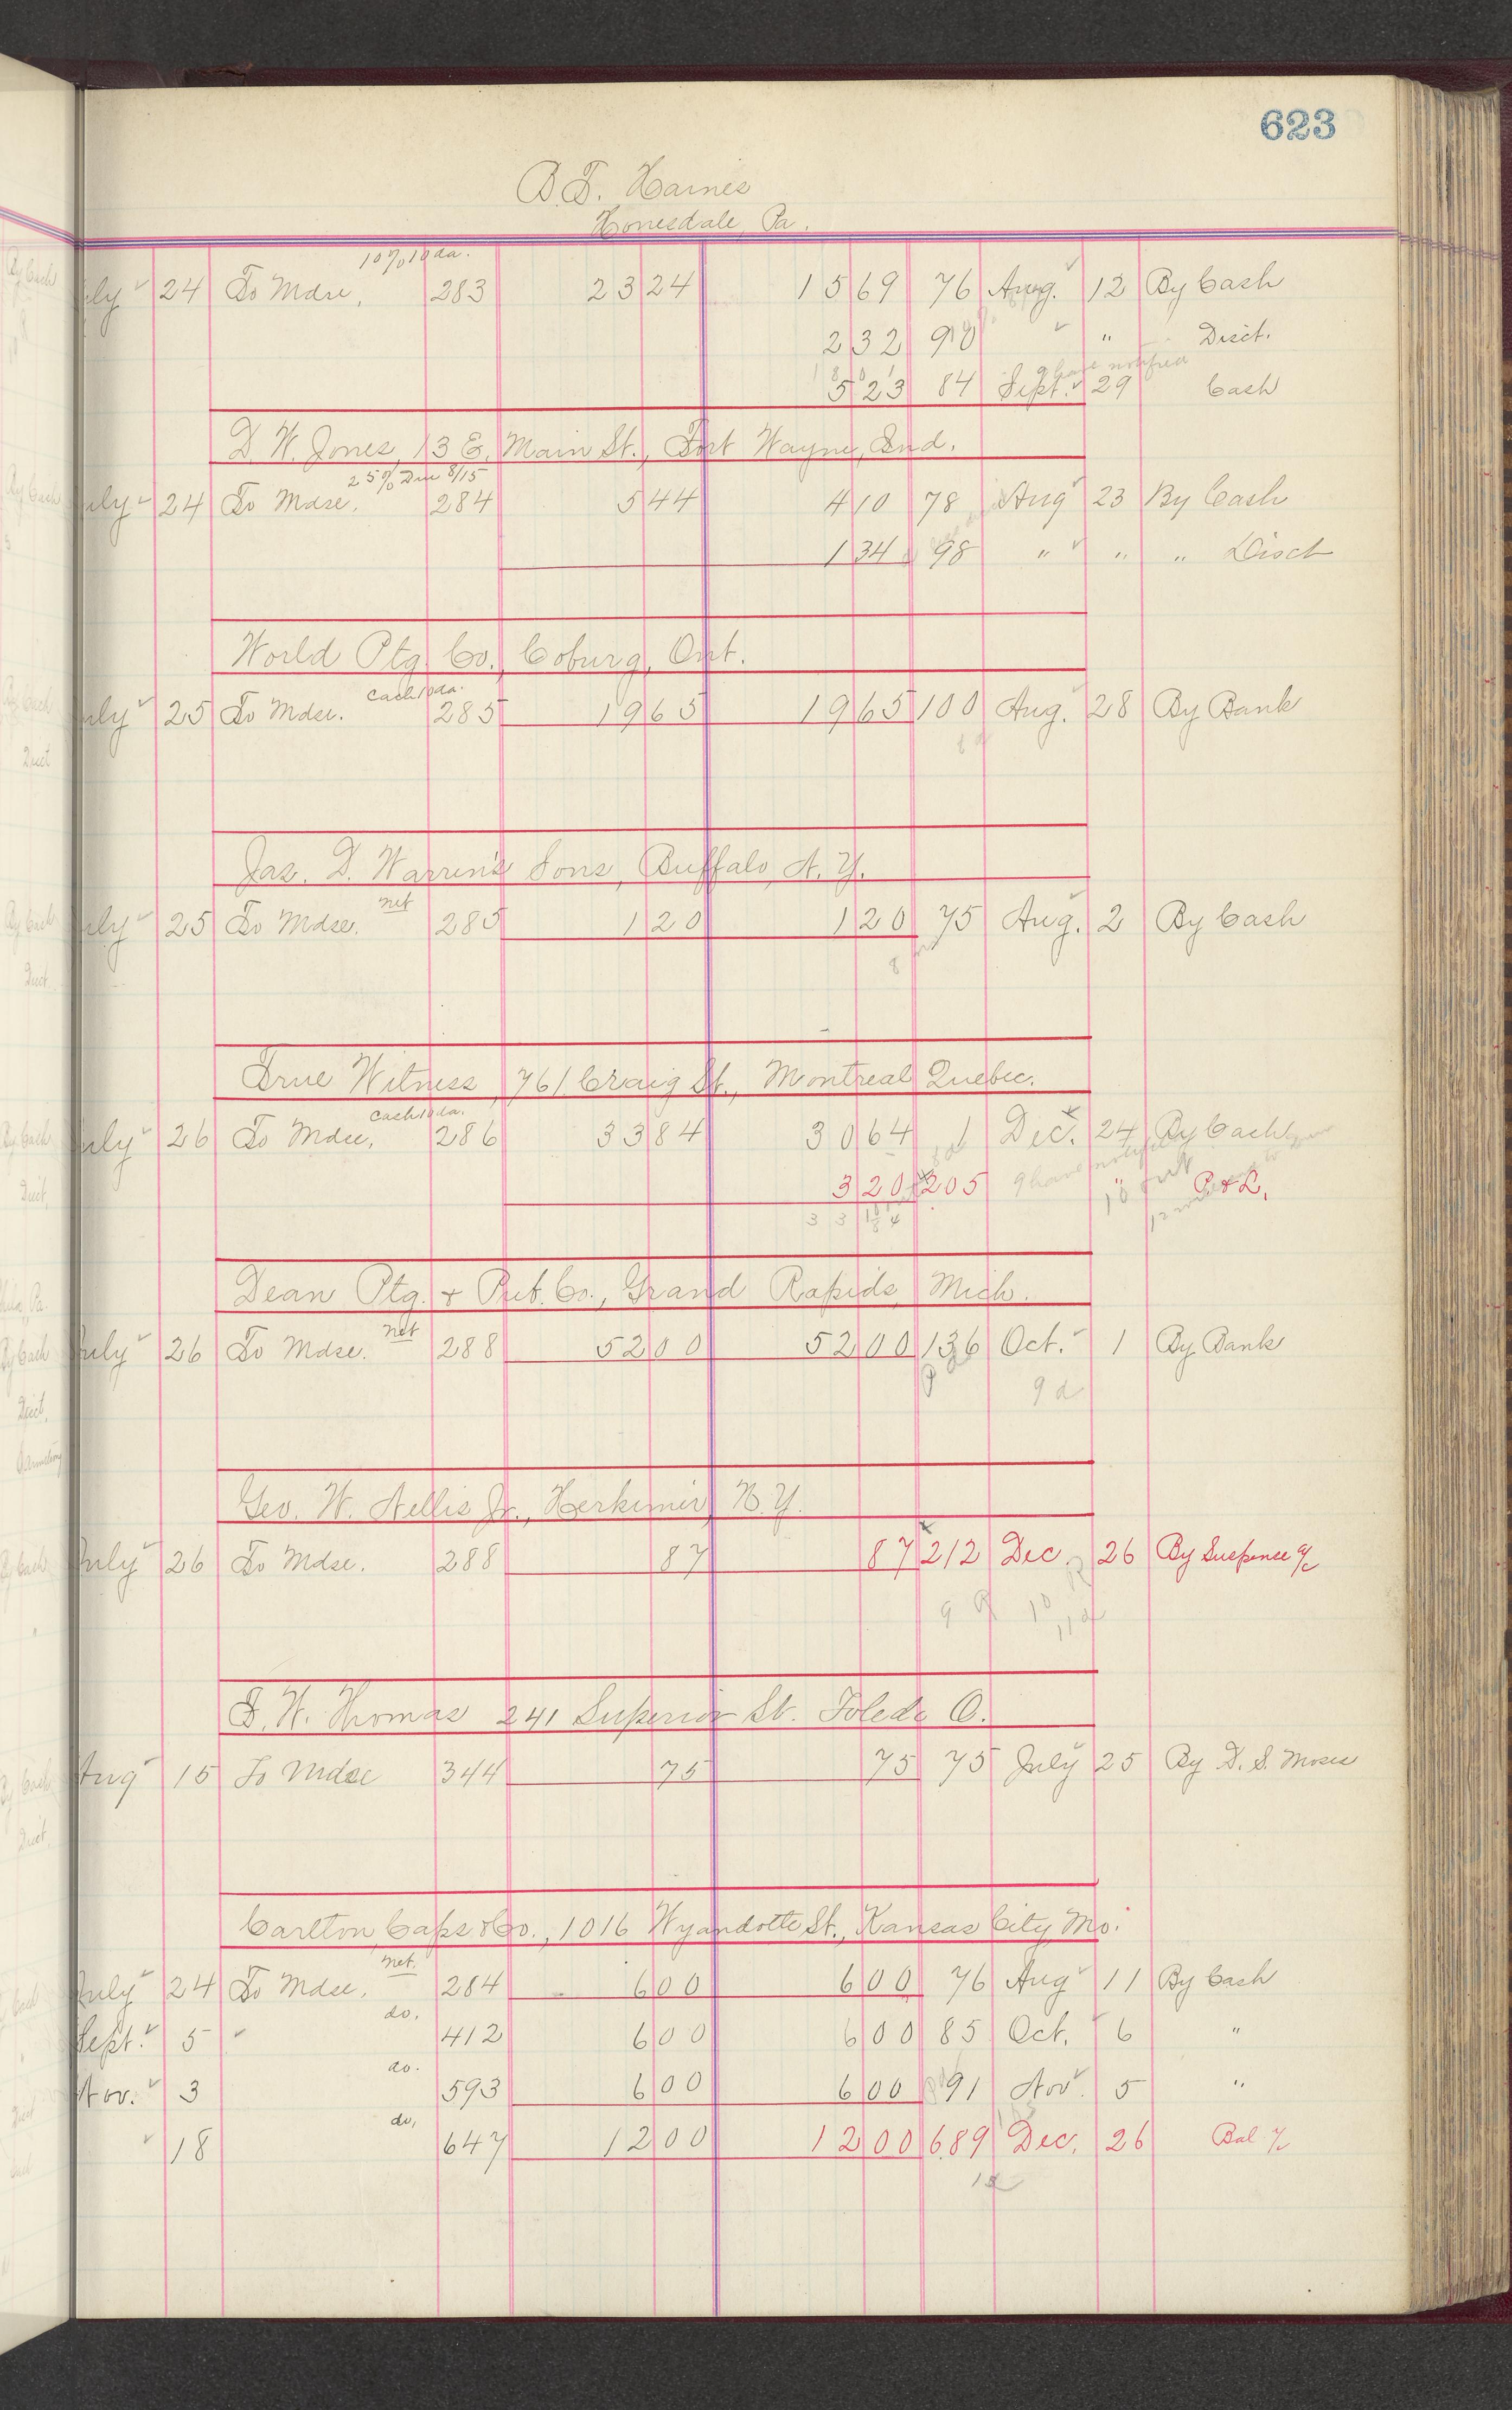 623
B. F. Haines
Honesdale, Pa.
10% 10 da.
July 24 To Mdse, 283 23 24 15 69 76 Aug. 12 By Cash
2 32 90 " " Disct.
5 23 84 Sept. 29 Cash
D. W. Jones, 13 E. Main St., Fort Wayne, Ind.
25% Due 8/15
July 24 To Mdse. 284 5 44 4 10 78 Aug 23 By Cash
1 34 98 " " " Disct
World Ptg. Co., Coburg, Ont.
Cash 10 da.
July 25 To Mdse. 285 19 65 19 65 100 Aug. 28 By Bank
8 d
Jas. D. Warren's Sons, Buffalo, N. Y.
net
July 25 To Mdse. 285 1 20 1 20 75 Aug. 2 By Cash
True Witness, 761 Craig St., Montreal Quebec.
Cash 10 da.
July 26 To Mdse, 286 33 84 30 64 1 Dec. 24 By Cash
3 20 205 " P & L.
Dean Ptg. & Pub. Co., Grand Rapids, Mich.
net
July 26 To Mdse. 288 52 00 52 00 136 Oct. 1 By Bank
9 d
Geo. W. Nellis Jr., Herkimer, N. Y.
July 26 To Mdse. 288 87 87 212 Dec. 26 By Suspence a/c
9 10
11 d
F. W. Thomas 241 Superior St. Toledo O.
Aug 15 To Mdse 344 75 75 75 July 25 By D. S. Moses
Carlton, Caps & Co., 1016 Wyandotte St., Kansas City, Mo.
net.
July 24 To Mdse, 284 6 00 6 00 76 Aug 11 By Cash
do.
Sept. 5 " 412 6 00 6 00 85 Oct. 6 "
do.
Nov. 3 593 6 00 6 00 91 Nov. 5 "
do.
" 18 647 12 00 12 00 689 Dec. 26 Bal %